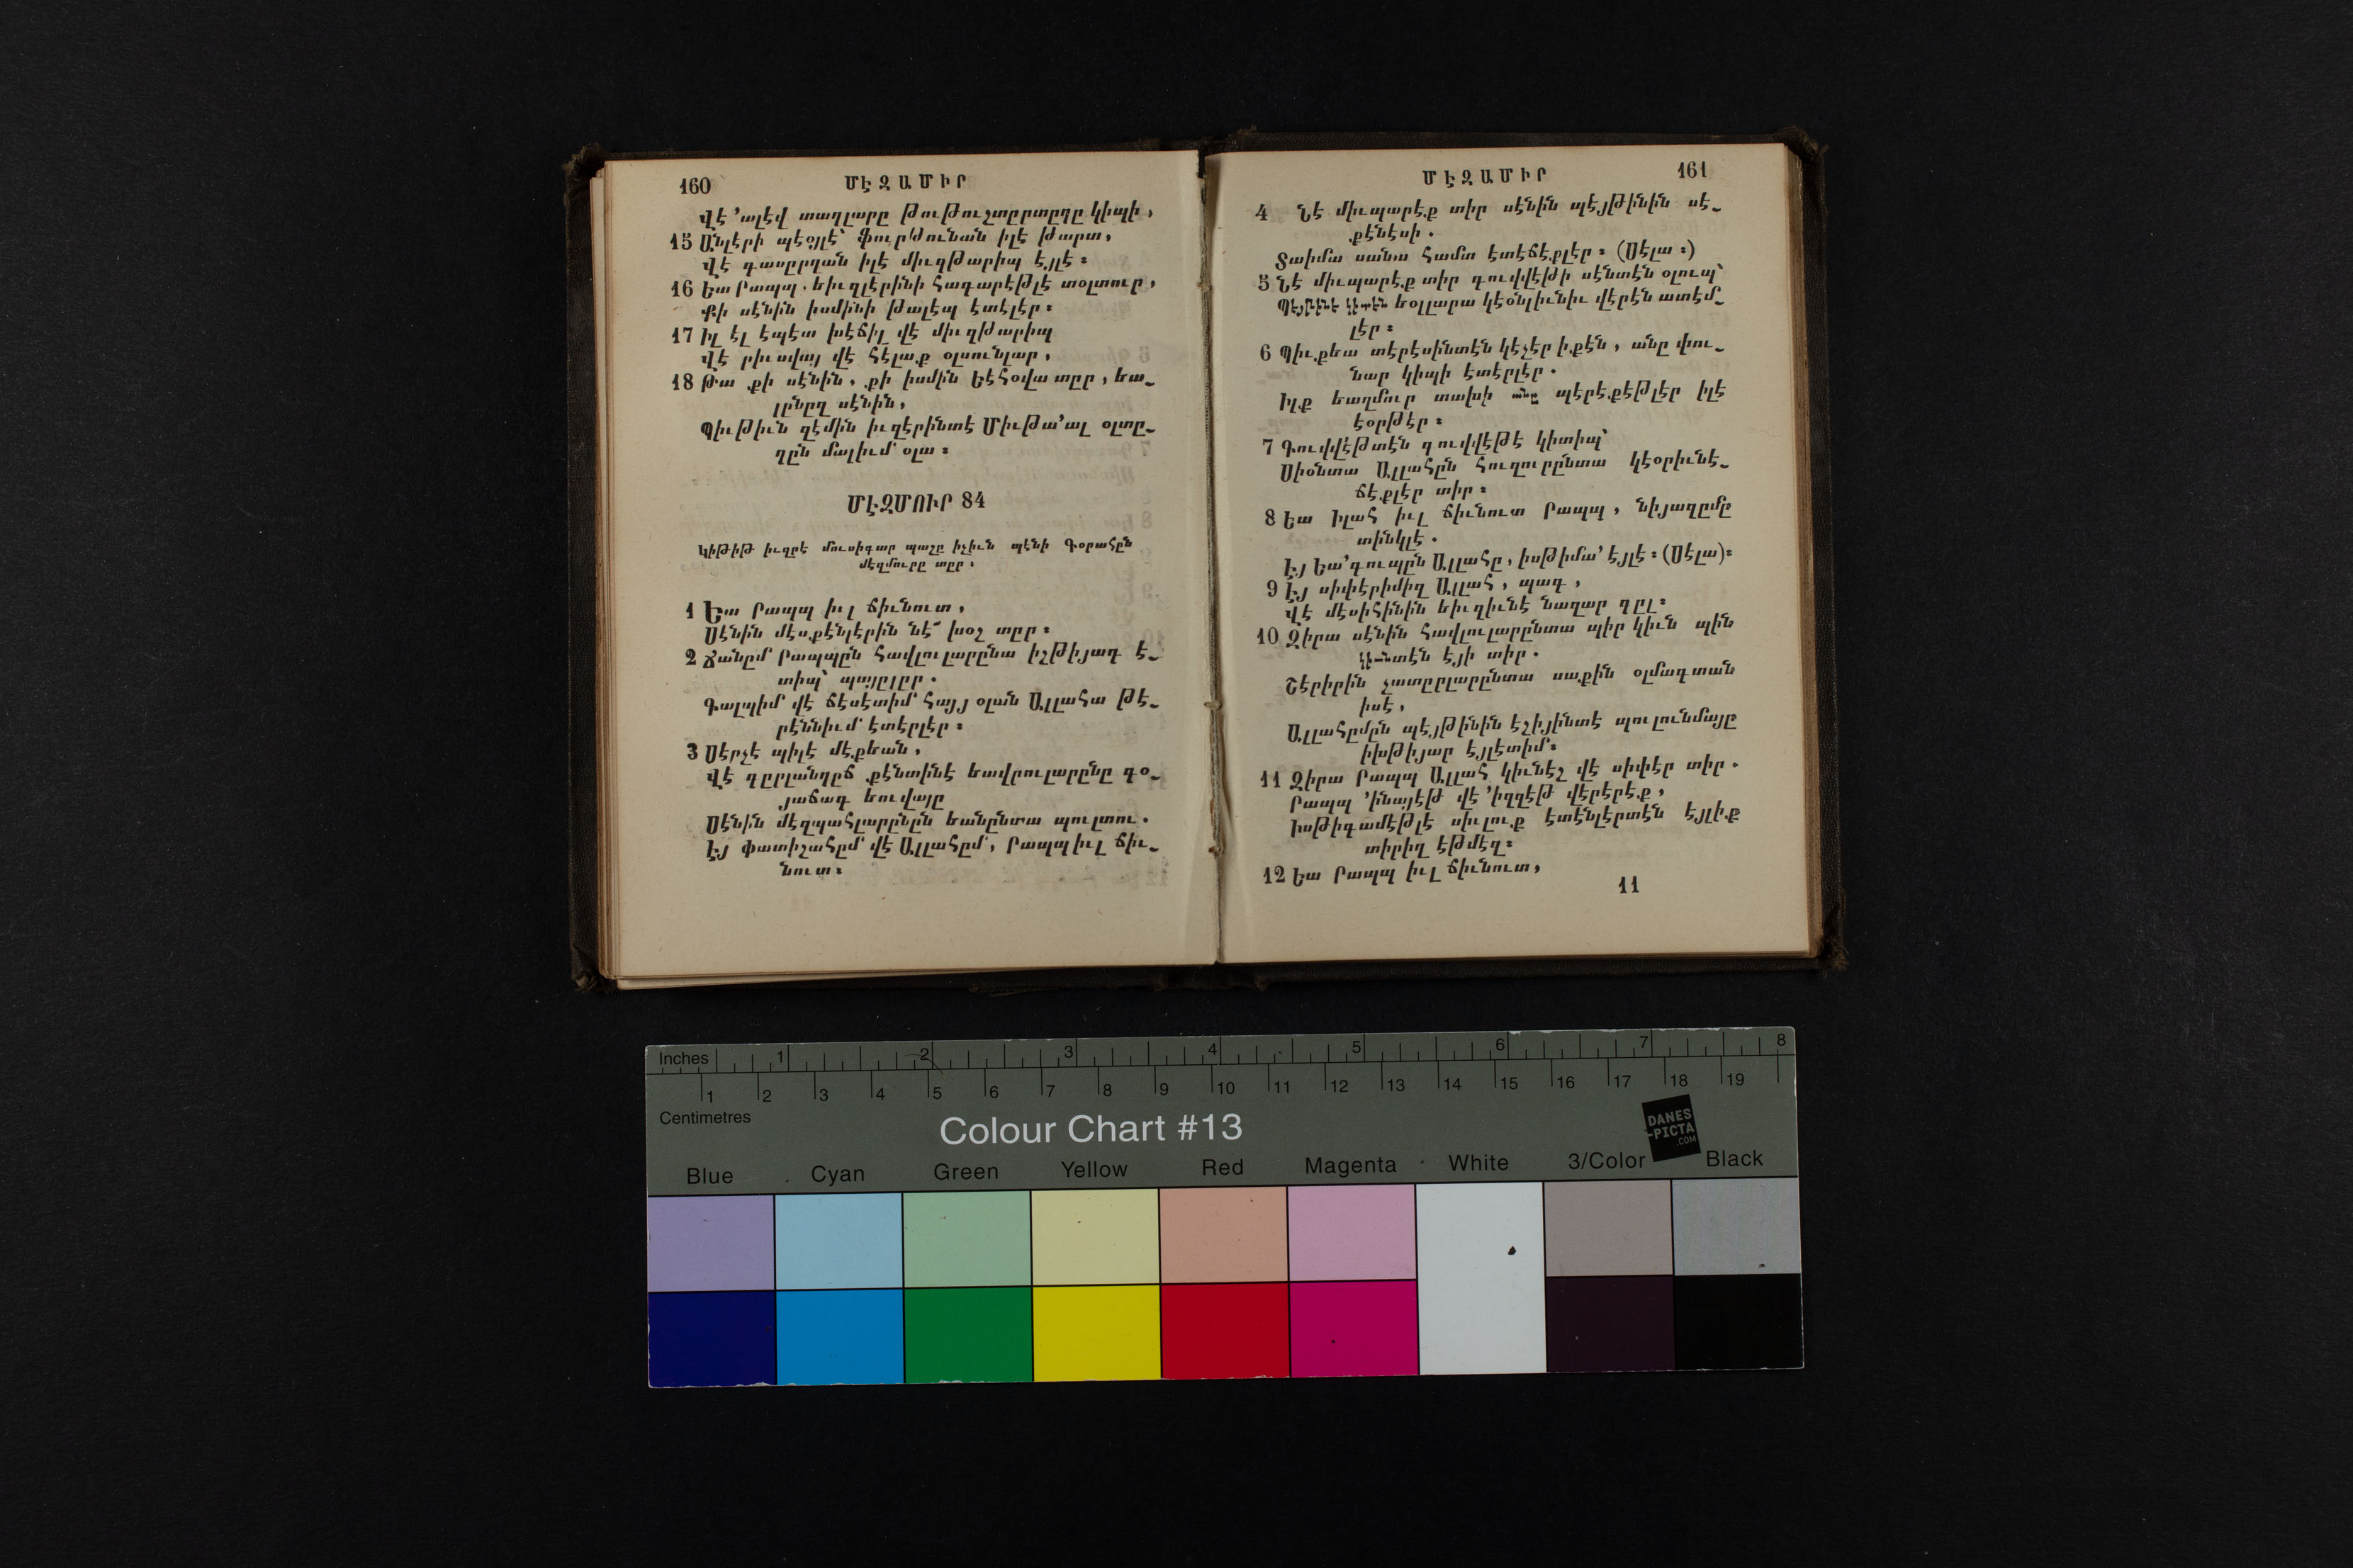 160 ՄԷԶԱՄԻՐ
Վէ ՚ալէվ տաղլարը թութուշտըրտըղը կիպի,
15 Անլերի պէօյլէ՝ ֆուրթունան իլէ թարտ,
Վէ գասըրղան իլէ միւղթարիպ էյլէ։
16 Եա Րապպ. եիւզլէրինի հագարէթլէ տօլտուր,
Քի սէնին իսմինի թալէպ էտէլէր։
17 Իլ էլ էպէտ խէճիլ վէ միւղթարիպ
Վէ րիւսվայ վէ հէլաք օլսունլար,
18 Թա քի սէնին, քի իսմին Եէհօվա տըր, եա֊
լընըզ սէնին,
Պիւթիւն զէմին իւզէրինտէ Միւթա՚ալ օլտը֊
ղըն մալիւմ օլա։
ՄԷԶՄՈՒՐ 84
Կիթիթ իւզրէ մուսիգար պաշը իչիւն պէնի Գօրահըն
մէզմուրը տըր.
1 Եա Րապպ իւլ ճիւնուտ,
Սէնին մէսքէնլէրին նէ՜ խօշ տըր։
2 Ճանըմ Րապպըն հավլուլարընա իշթիյագ է֊
տիպ՝ պայըլըր.
Գալպիմ վէ ճէսէտիմ հայյ օլան Ալլահա թէ֊
րէննիւմ էտէրլէր։
3 Սէրչէ պիլէ մէքեան,
Վէ գըրլանղըճ քէնտինէ եավրուլարընը գօ֊
յաճագ եուվայը
Սէնին մէզպահլարընըն եանընտա պուլտու.
Էյ փատիշահըմ վէ Ալլահըմ, Րապպ իւլ ճիւ֊
նուտ։
ՄԷԶԱՄԻՐ 161
4 Նէ միւպարէք տիր սէնին պէյթինին սէ֊
քէնէսի.
Տաիմա սանա համտ էտէճէքլէր։ (Սէլա։)
5 Նէ միւպարէք տիր գուվվէթի սէնտէն օլուպ՝
եօլլարա կէօնլիւնիւ վէրէն ատէմ֊
լէր։
6 Պիւքեա տէրէսինտէն կէչէր իքէն, անը փու֊
նար կիպի էտէրլէր.
Իլք եաղմուր տախի անը պէրէքէթլէր իլէ
էօրթէր։
7 Գուվվէթտէն գուվվէթէ կիտիպ՝
Սիօնտա Ալլահըն հուզուրընտա կէօրիւնէ֊
ճէքլէր տիր։
8 Եա Իլահ իւլ ճիւնուտ Րապպ, նիյազըմը
տինկլէ.
Էյ Եա՚գուպըն Ալլահը, իսթիմա՚ էյլէ։ (Սէլա)։
9 Էյ սիփէրիմիզ Ալլահ, պագ,
Վէ մէսիհինին եիւզիւնէ նազար գըլ։
10 Զիրա սէնին հավլուլարընտա պիր կիւն պին
կիւնտէն էյի տիր.
Շէրիրին չատըրլարընտա սաքին օլմագտան
իսէ,
Ալլահըմըն պէյթինին էշիյինտէ պուլունմայը
իխթիյար էյլէտիմ։
11 Զիրա Րապպ Ալլահ կիւնէշ վէ սիփէր տիր.
Րապպ ՚ինայէթ վէ ՚իզզէթ վէրէրէք,
Իսթիգամէթլէ սիւլուք էտէնլէրտէն էյլիք
տիրիղ էթմէզ։
12 Եա Րապպ իւլ ճիւնուտ,
11
Inches 1 2 3 4 5 6 7 8
1 2 3 4 5 6 7 8 9 10 11 12 13 14 15 16 17 18 19
Centimetres
Colour Chart #13
DANES
-PICTA
.COM
Blue Cyan Green Yellow Red Magenta White 3/Color Black